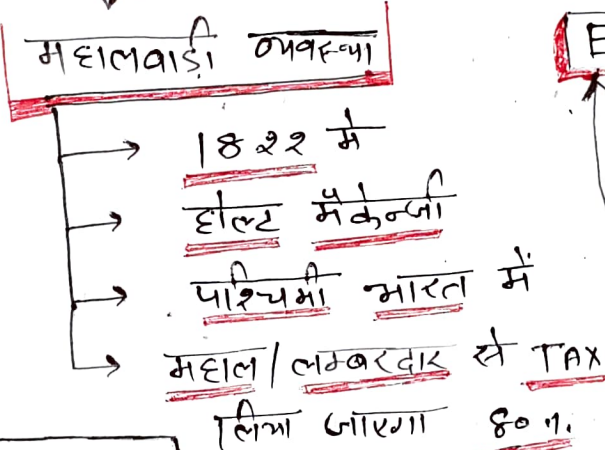 महालवाड़ी व्यवस्था
E
1822 मे
होल्ट मैकेन्जी
पश्चिमी भारत में
महाल/लम्बरदार से TAX
लिया जाएगा 80%.